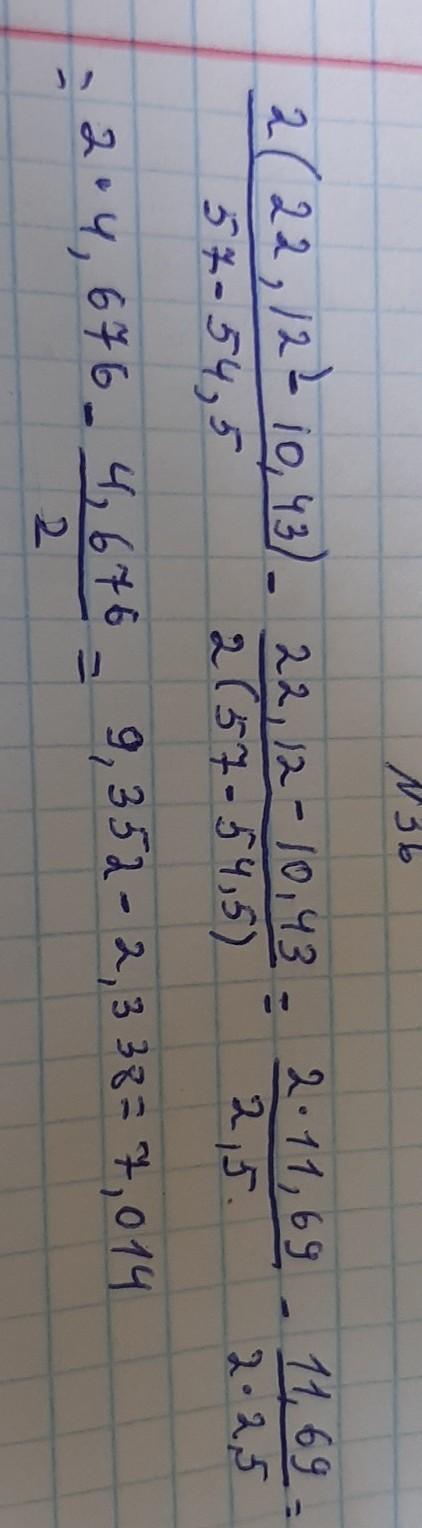 N3b
2(22,12-10,43)/57-54,5 - 22,12-10,43/2(57-54,5) = 2·11,69/2,5 - 11,69/2·2,5 =
= 2·4,676 - 4,676/2 = 9,352 - 2,338 = 7,014